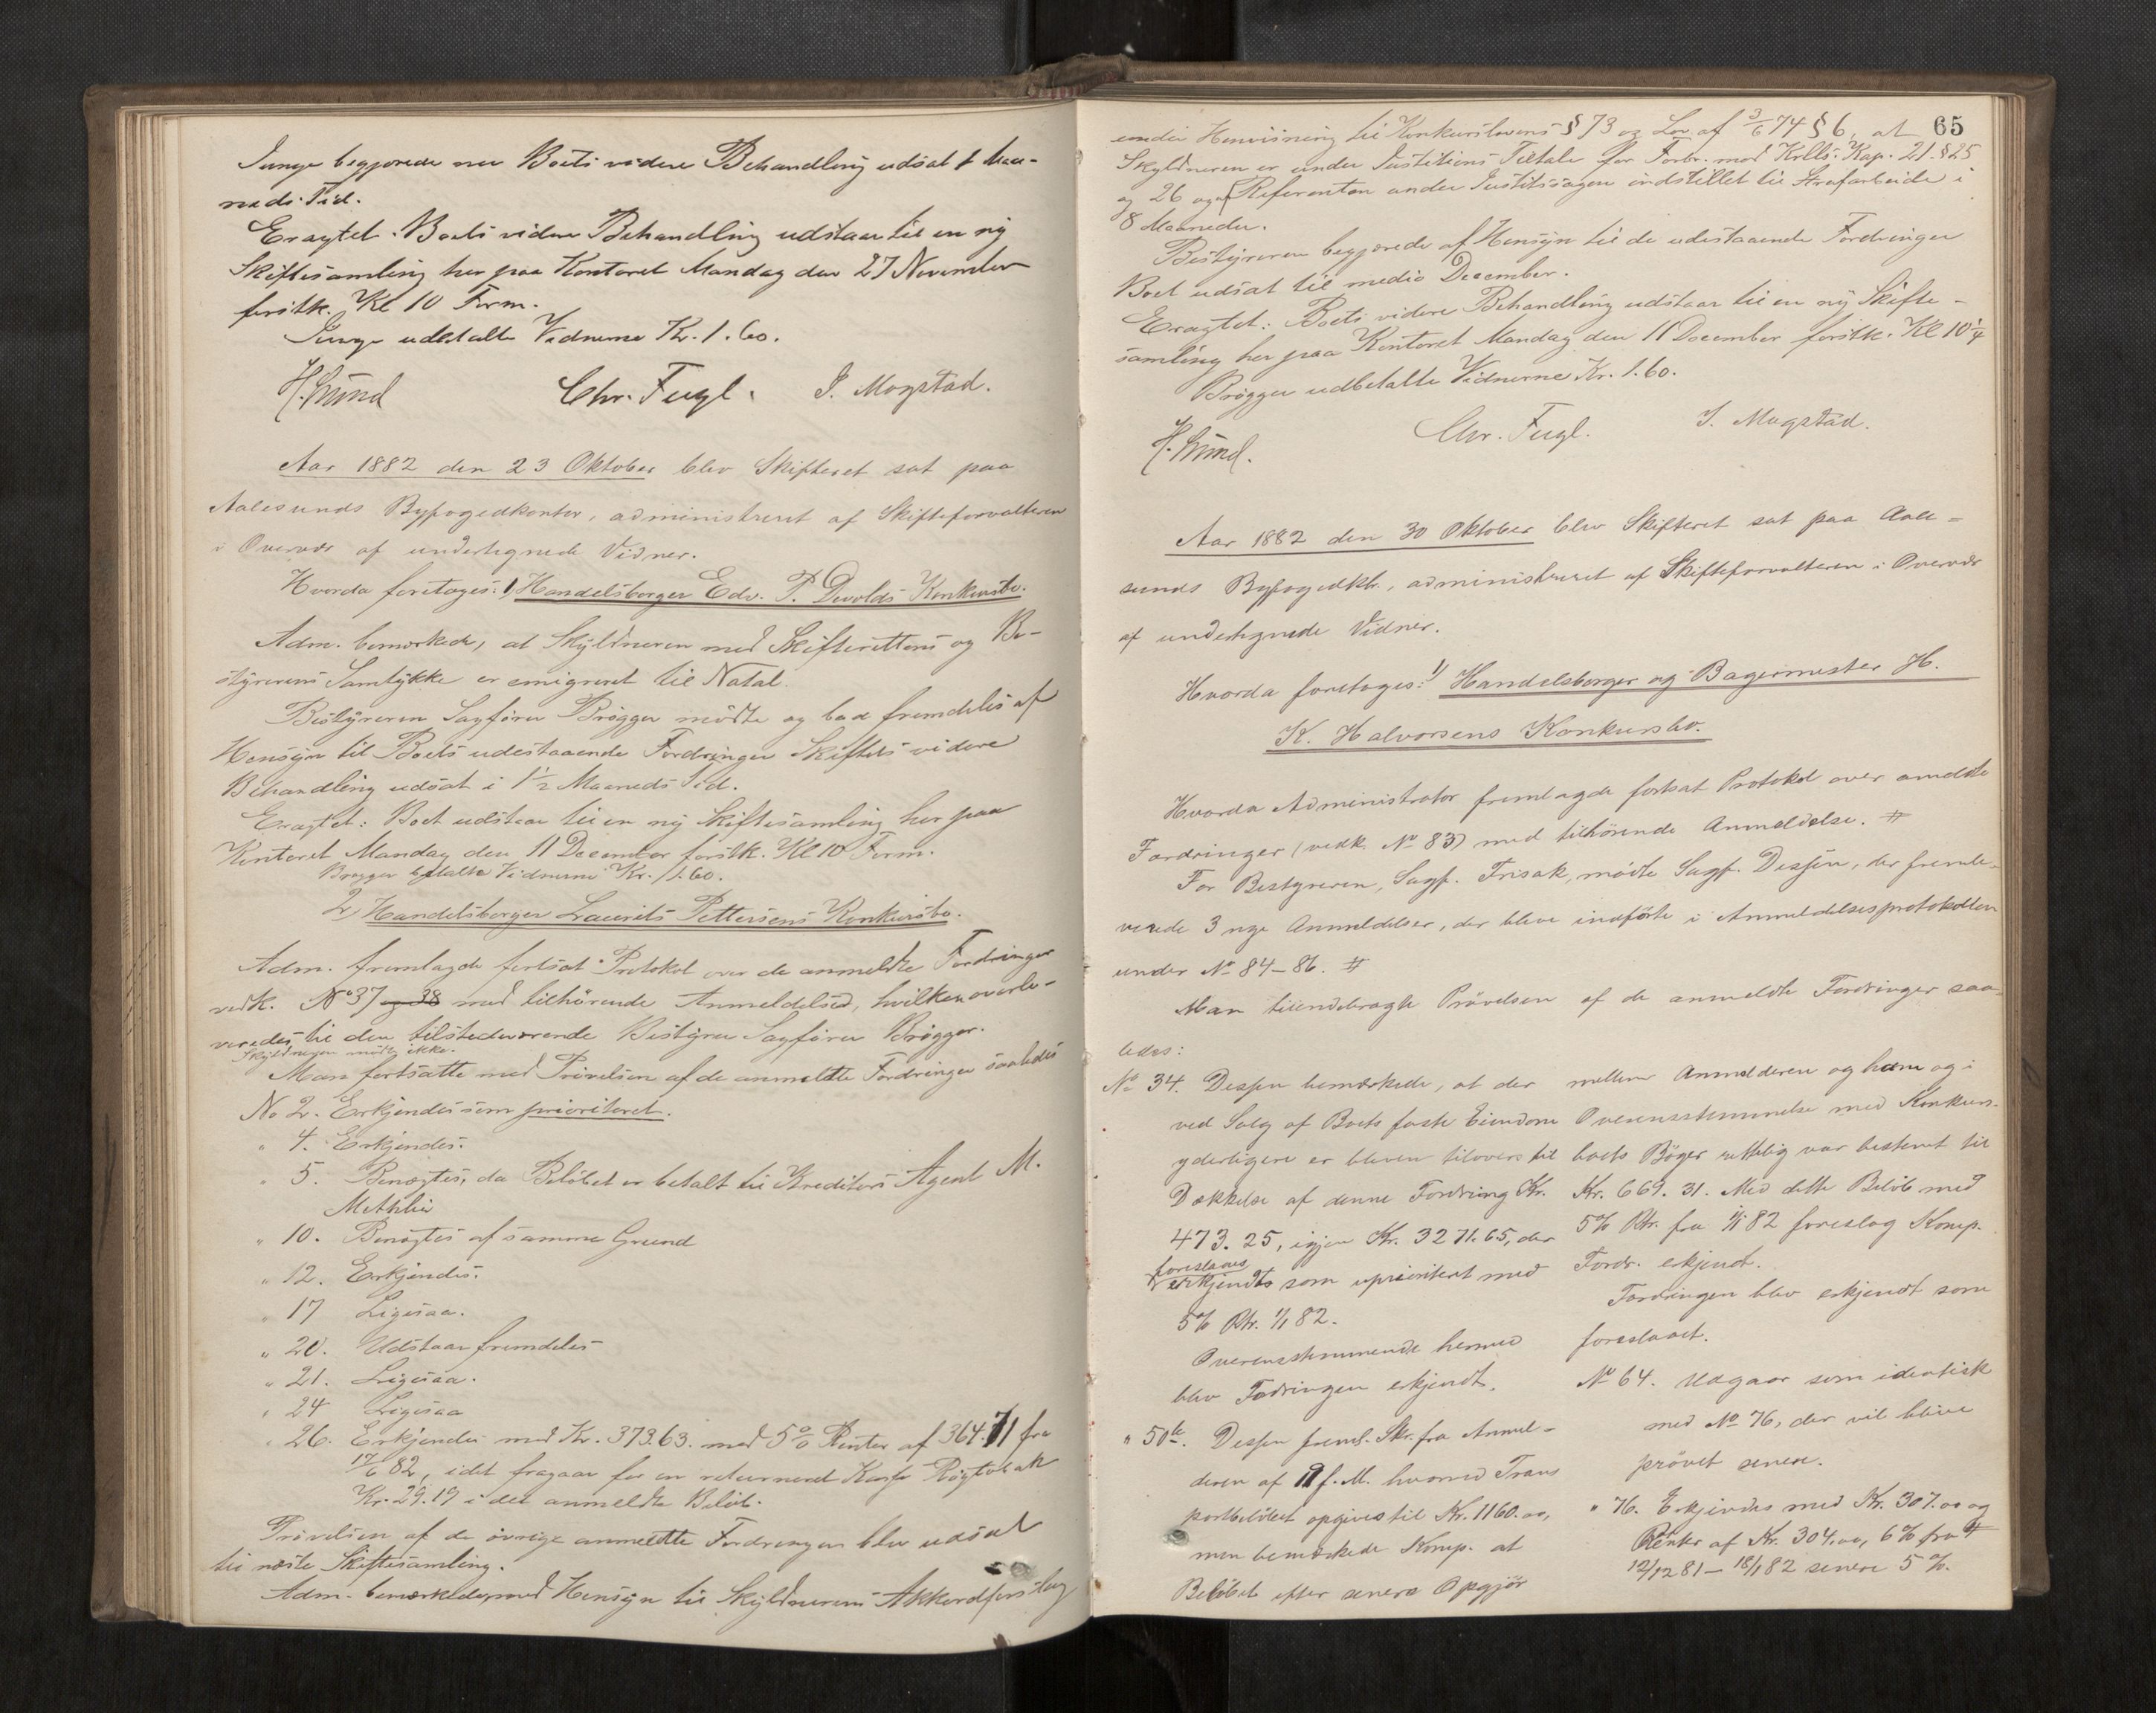 Junge begjærede nu Boets videre Behandling udsat 1 Maa-
neds Tid.
Eragtet. Boets videre Behandling udstaar til en ny
Skiftesamling her paa Kontoret Mandag den 27 November
førstk. Kl 10 Form.
Junge udbetalte Vidnerne Kr. 1.60.
Chr. Fugl. J. Mogstad.
Aar 1882 den 23 Oktober blev Skifteret sat paa
Aalesunds Byfogedkontor, administreret af Skifteforvalteren
i Overvær af undertegnede Vidner.
Hvorda foretoges: 1) Handelsborger Edv. P. Devolds Konkursbo.
Adm. bemærkede, at Skyldneren med Skifterettens og Be-
styrerens Samtykke er emigreret til Natal.
Bestyreren Sagfører Brøgger mødte og bad fremdeles af
Hensyn til Boets udestaaende Fordringer Skiftets videre
Behandling udsat i 1½ Maaneds Tid.
Eragtet: Boet udstaar til en ny Skiftesamling her paa
Kontoret Mandag den 11 December førstk. Kl 10 Form.
Brøgger betalte Vidnerne Kr. 1.60.
2) Handelsborger Laurits Pettersens Konkursbo.
Adm. fremlagde fortsat Protokol over de anmeldte Fordringer
vedk. No 37 og 38 med tilhørende Anmeldelser, hvilken overle-
veredes til den tilstedeværende Bestyrer Sagfører Brøgger.
Skyldneren mødte ikke.
Man fortsatte med Prøvelsen af de anmeldte Fordringer saaledes
No 2. Erkjendes som prioriteret.
" 4. Erkjendes.
" 5. Benægtes, da Beløbet er betalt til Kreditors Agent M.
Methlie
" 10. Benægtes af samme Grund
" 12. Erkjendes.
" 17 Ligesaa.
" 20. Udstaar fremdeles
" 21. Ligesaa.
" 24 Ligesaa
" 26. Erkjendes med Kr. 373.63. med 5% Renter af 364.71 fra
17/6 82, idet fragaar for en returneret Kasse Røgtobak
Kr. 29.19 i det anmeldte Beløb.
Prøvelsen af de øvrige anmeldte Fordringer blev udsat
til næste Skiftesamling.
Adm. bemærkede med Hensyn til Skyldnerens Akkordforslag
65
under Henvisning til Konkurslovens § 73 og Lov af 3/6 74 § 6, at
Skyldneren er under Justitiens Tiltale for Forbr. mod Krlls. Kap. 21. § 25
og 26 og af Referenten under Justitssagen indstillet til Strafarbeide i
8 Maaneder.
Bestyreren begjærede af Hensyn til de udestaaende Fordringer
Boet udsat til medio December.
Eragtet: Boets videre Behandling udstaar til en ny Skifte-
samling her paa Kontoret Mandag den 11 December førstk. Kl 10¼
Brøgger udbetalte Vidnerne Kr. 1.60.
Chr. Fugl. J. Mogstad.
Aar 1882 den 30 Oktober blev Skifteret sat paa Aale=
sunds Byfogedktr., administreret af Skifteforvalteren i Overvær
af undertegnede Vidner.
Hvorda foretoges: 1) Handelsborger og Bagermester H.
K. Halvorsens Konkursbo.
Hvorda Administrator fremlagde fortsat Protokol over anmeldte
Fordringer (vedk. No 83) med tilhørende Anmeldelse. #
For Bestyreren, Sagf. Frisak, mødte Sagf. Desjen, der fremle-
verede 3 nye Anmeldelser, der bleve indførte i Anmeldelsesprotokollen
under No 84-86. #
Man tilendebragte Prøvelsen af de anmeldte Fordringer saa-
ledes:
No 34. Desjen bemærkede, at der
ved Salg af Boets faste Eiendom
yderligere er bleven tilovers til
Dækkelse af denne Fordring Kr.
473.25, igjen Kr. 3271.65, der
foreslaaes
erkjendt som uprioritert med
5% Rtr. 1/1 82.
Overensstemmende hermed
blev Fordringen erkjendt.
" 50 Desjen freml. Skr. fra Anmel-
deren af 19 f. M. hvorved Trans
portbeløbet opgives til Kr. 1160.00,
men bemærkede Komp. at
Beløbet efter senere Opgjør
mellem Anmelderen og ham og i
Overensstemmelse med Konkurs-
boets Bøger rettelig var bestemt til
Kr. 669.31. Med dette Beløb med
5% Rtr. fra 1/1 82 foreslog Komp.
Fordr. erkjendt.
Fordringen blev erkjendt som
foreslaaet.
No 64. Udgaar som identisk
med No 76, der vil blive
prøvet senere.
" 76. Erkjendes med Kr. 307.00 og
Renter af Kr. 304.00, 6% fra
12/12 81 - 18/1 82 senere 5%.